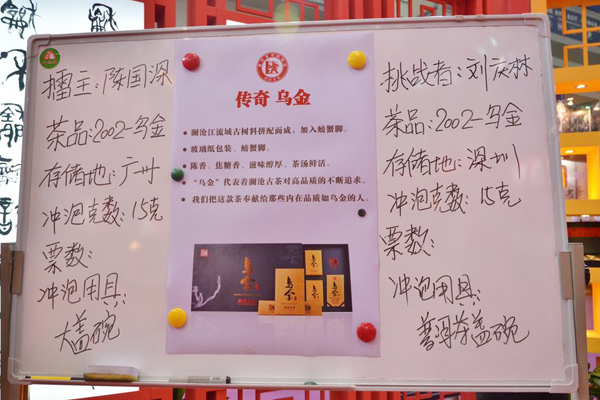 擂主:陈国深
茶品:2002-乌金
存储地:广州
冲泡克数:15克
票数:
冲泡用具:
大盖碗
传奇 乌金
• 澜沧江流域古树料拼配而成，加入螃蟹脚。
• 玻璃纸包装、螃蟹脚。
• 陈香、焦糖香、滋味醇厚、茶汤鲜活。
• “乌金”代表着澜沧古茶对高品质的不断追求。
• 我们把这款茶奉献给那些内在品质如乌金的人。
乌金
乌金
挑战者:刘庆林
茶品:2002-乌金
存储地:深圳
冲泡克数:15克
票数:
冲泡用具:
普洱茶盖碗